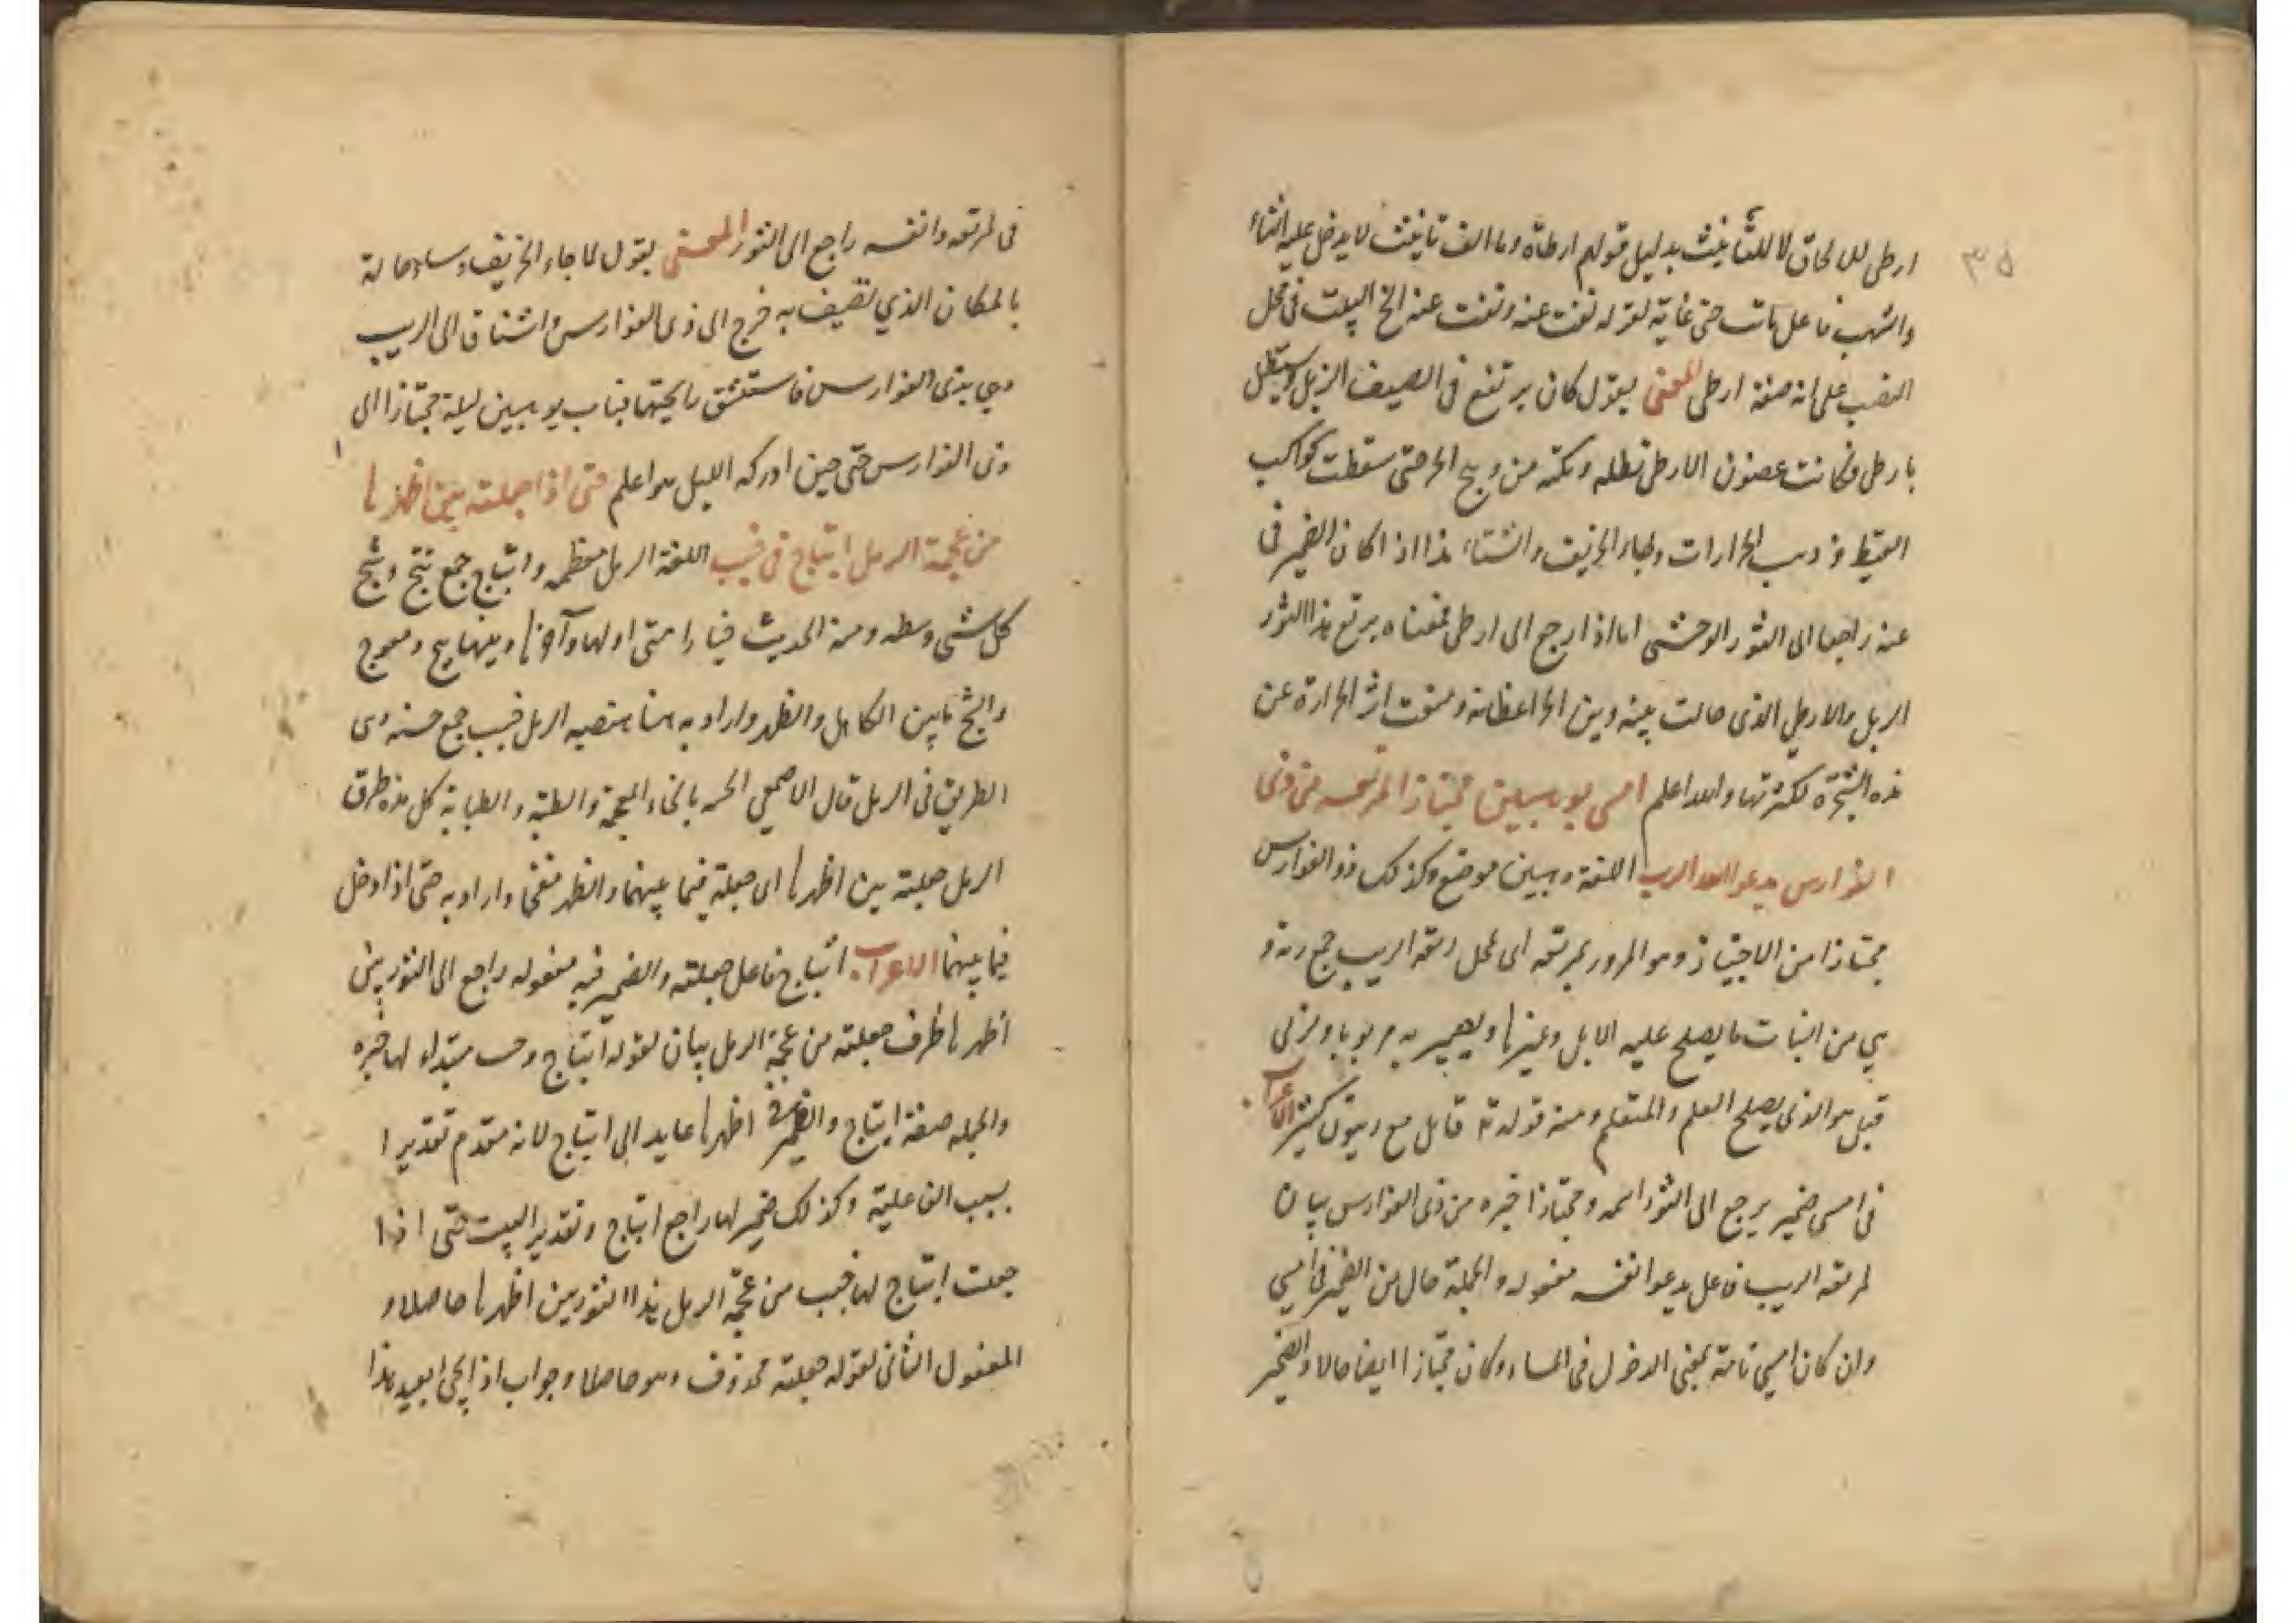 ٣٥
ارطى للالحاق لا للتأنيث بدليل قولهم ارطاة وما الف تانيث لا يدخل عليه التاء
والشهب فاعل مات حتى غاية لقوله نفت عنه ونفت عنه الخ البيت فى محل
النصب على انه صفة ارطى المعنى يقول كان يرتفع فى الصيف الربل ويستظل
بارطى فكانت غصون الارطى تظله وتكنه من وهج الحر حتى سقطت كواكب
القيظ وذهب الحرارات وجاء الخريف والشتاء هذا اذا كان الضمير فى
عنه راجعا الى الثور الوحشى اما اذا رجع الى ارطى فمعناه يرتع هذا الثور
الربل والارطى الذى حالت بينه وبين الحر اغصانه ومنعت اثر الحرارة عن
هذه الشجرة لكثرتها والله اعلم امسى بوهبين مجتازا لمرتعه من ذى
الفوارس يدعو انفه الربب اللغة وهبين موضع وكذلك ذو الفوارس
مجتازا من الاجتياز وهو المرور بمرتعه اى محل رتعه الربب جمع ربة و
هي من النبات ما يصلح عليه الابل وغيرها ويصير به مربوبا و
قيل هو الذى يصلح العلم والمتعلم ومنه قوله تع قاتل مع ربيون كثير الاعراب
فى امسى ضمير يرجع الى الثور اسمه ومجتازا خبره من ذى الفوارس بيان
لمرتعه الربب فاعل يدعو انفه مفعوله والجملة حال من الضمير فى امسي
وان كان امسي تامة بمعنى الدخول فى المساء وكان مجتازا ايضا حالا والضمير
فى لمرتعه وانفه راجع الى الثور المعنى يقول لما جاء الخريف وساء حاله
بالمكان الذي تصيف به فرج الى ذى الفوارس واشتاق الى الربب
وهي بذى الفوارس فاستنشق رايحتها فبات بوهبين ليلة مجتازا الى
ذى الفوارس حتى حين ادركه الليل هو اعلم حتى اذا جعلته بين اظهرها
من عجمة الرمل اثباج فى خبب اللغة الرمل معظمه واثباج جمع ثبج وثبج
كل شئ وسطه ومنه الحديث خيار امتى اولها وآخرها وبينهما ثبج ومعوج
والثبج ما بين الكاهل والظهر واراد به هنا الرمل خبب جمع خبة وهى
الطريق فى الرمل قال الاصمعي الخبة بالخاء المعجمة والطبة والطبابة كل هذه طرق
الرمل جعلته بين اظهرها اى جعلته فيما بينهما والظهر مقحم واراد به حتى اذا دخل
فيما بينهما الاعراب اثباج فاعل جعلته والضمير فيه مفعوله راجع الى الثور بين
اظهرها ظرف جعلته من عجمة الرمل بيان لقوله اثباج وخبب مبتداء لها خبره
والجمله صفة اثباج والضمير فى اظهرها عايد الى اثباج لانه متقدم تقديرا
بسبب الفاعلية وكذلك ضمير لها راجع اثباج وتقدير البيت حتى اذا
جعلت اثباج لها خبب من عجمة الرمل هذا الثور بين اظهرها حاصلا و
المفعول الثانى لقوله جعلته محذوف وهو حاصلا وجواب اذا يجئ بعيد هذا